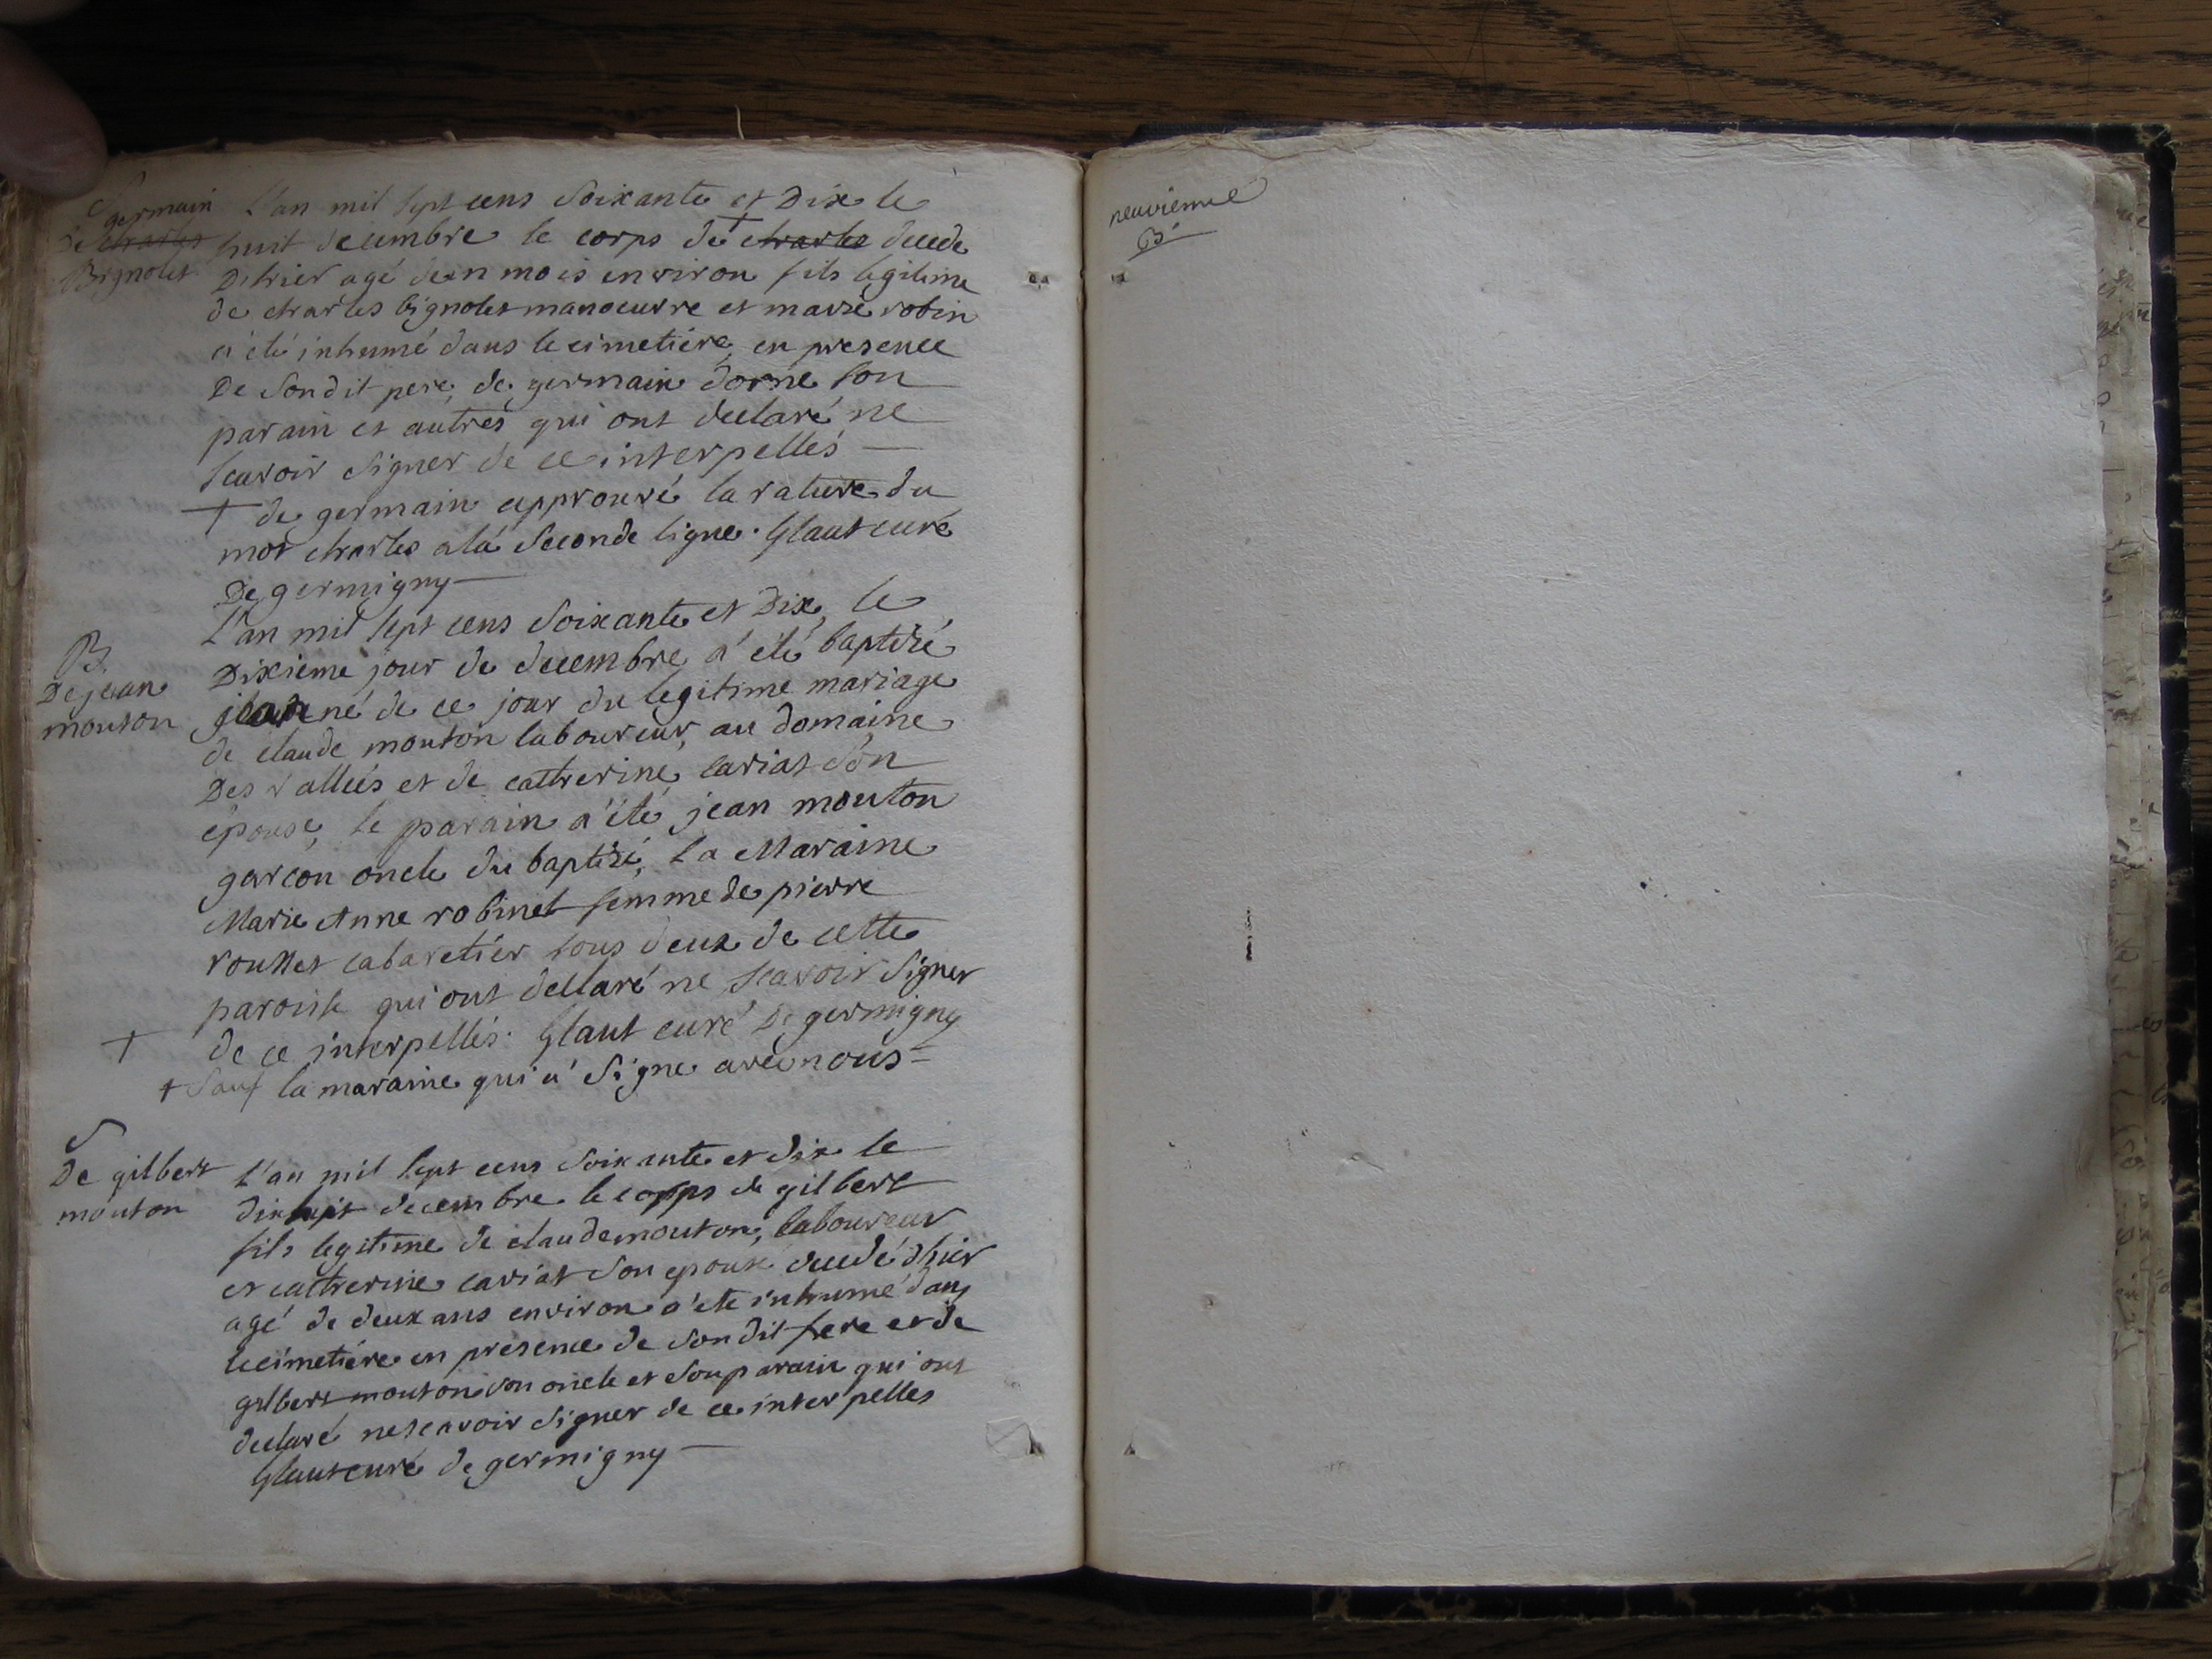 S
germain
De charles
Bignolet
L'an mil sept cens soixante et Dix le
huit decembre le corps de + charles decede
D'hier agé d'un mois environ fils legitime
de charles bignolet manoeuvre et marie robin
a été inhumé dans le cimetiére en presence
De son dit pere, de germain dorne son
parain et autres qui ont declaré ne
scavoir signer de ce interpellés
+ de germain approuvé la rature du
mot charles a la seconde ligne. Glaut curé
De germigny
B.
De jean
mouton
L'an mil sept cens soixante et Dix, le
Dixieme jour de decembre a été baptizé
jean né de ce jour du legitime mariage
de claude mouton laboureur, au domaine
Des vallées et de catherine cariat son
épouse, le parain a été jean mouton
garcon oncle du baptizé, La Maraine
Marie Anne robinet femme de pierre
rousset cabaretiér tous deux de cette
paroisse qui ont declaré ne scavoir signer
+ de ce interpellés. Glaut curé De germigny
+ sauf la maraine qui a signe avec nous =
S
De gilbert
mouton
L'an mil sept cens soixante et dix le
dixhuit decembre le corps de gilbert
fils legitime de claude mouton, laboureur
et catherine cariat son epouse decedé d'hier
agé de deux ans environ a été inhumé dans
le cimetiére en presence de son dit pere et de
gilbert mouton son oncle et son parain qui ont
declaré ne scavoir signer de ce interpelles
Glaut curé de germigny
neuviéme